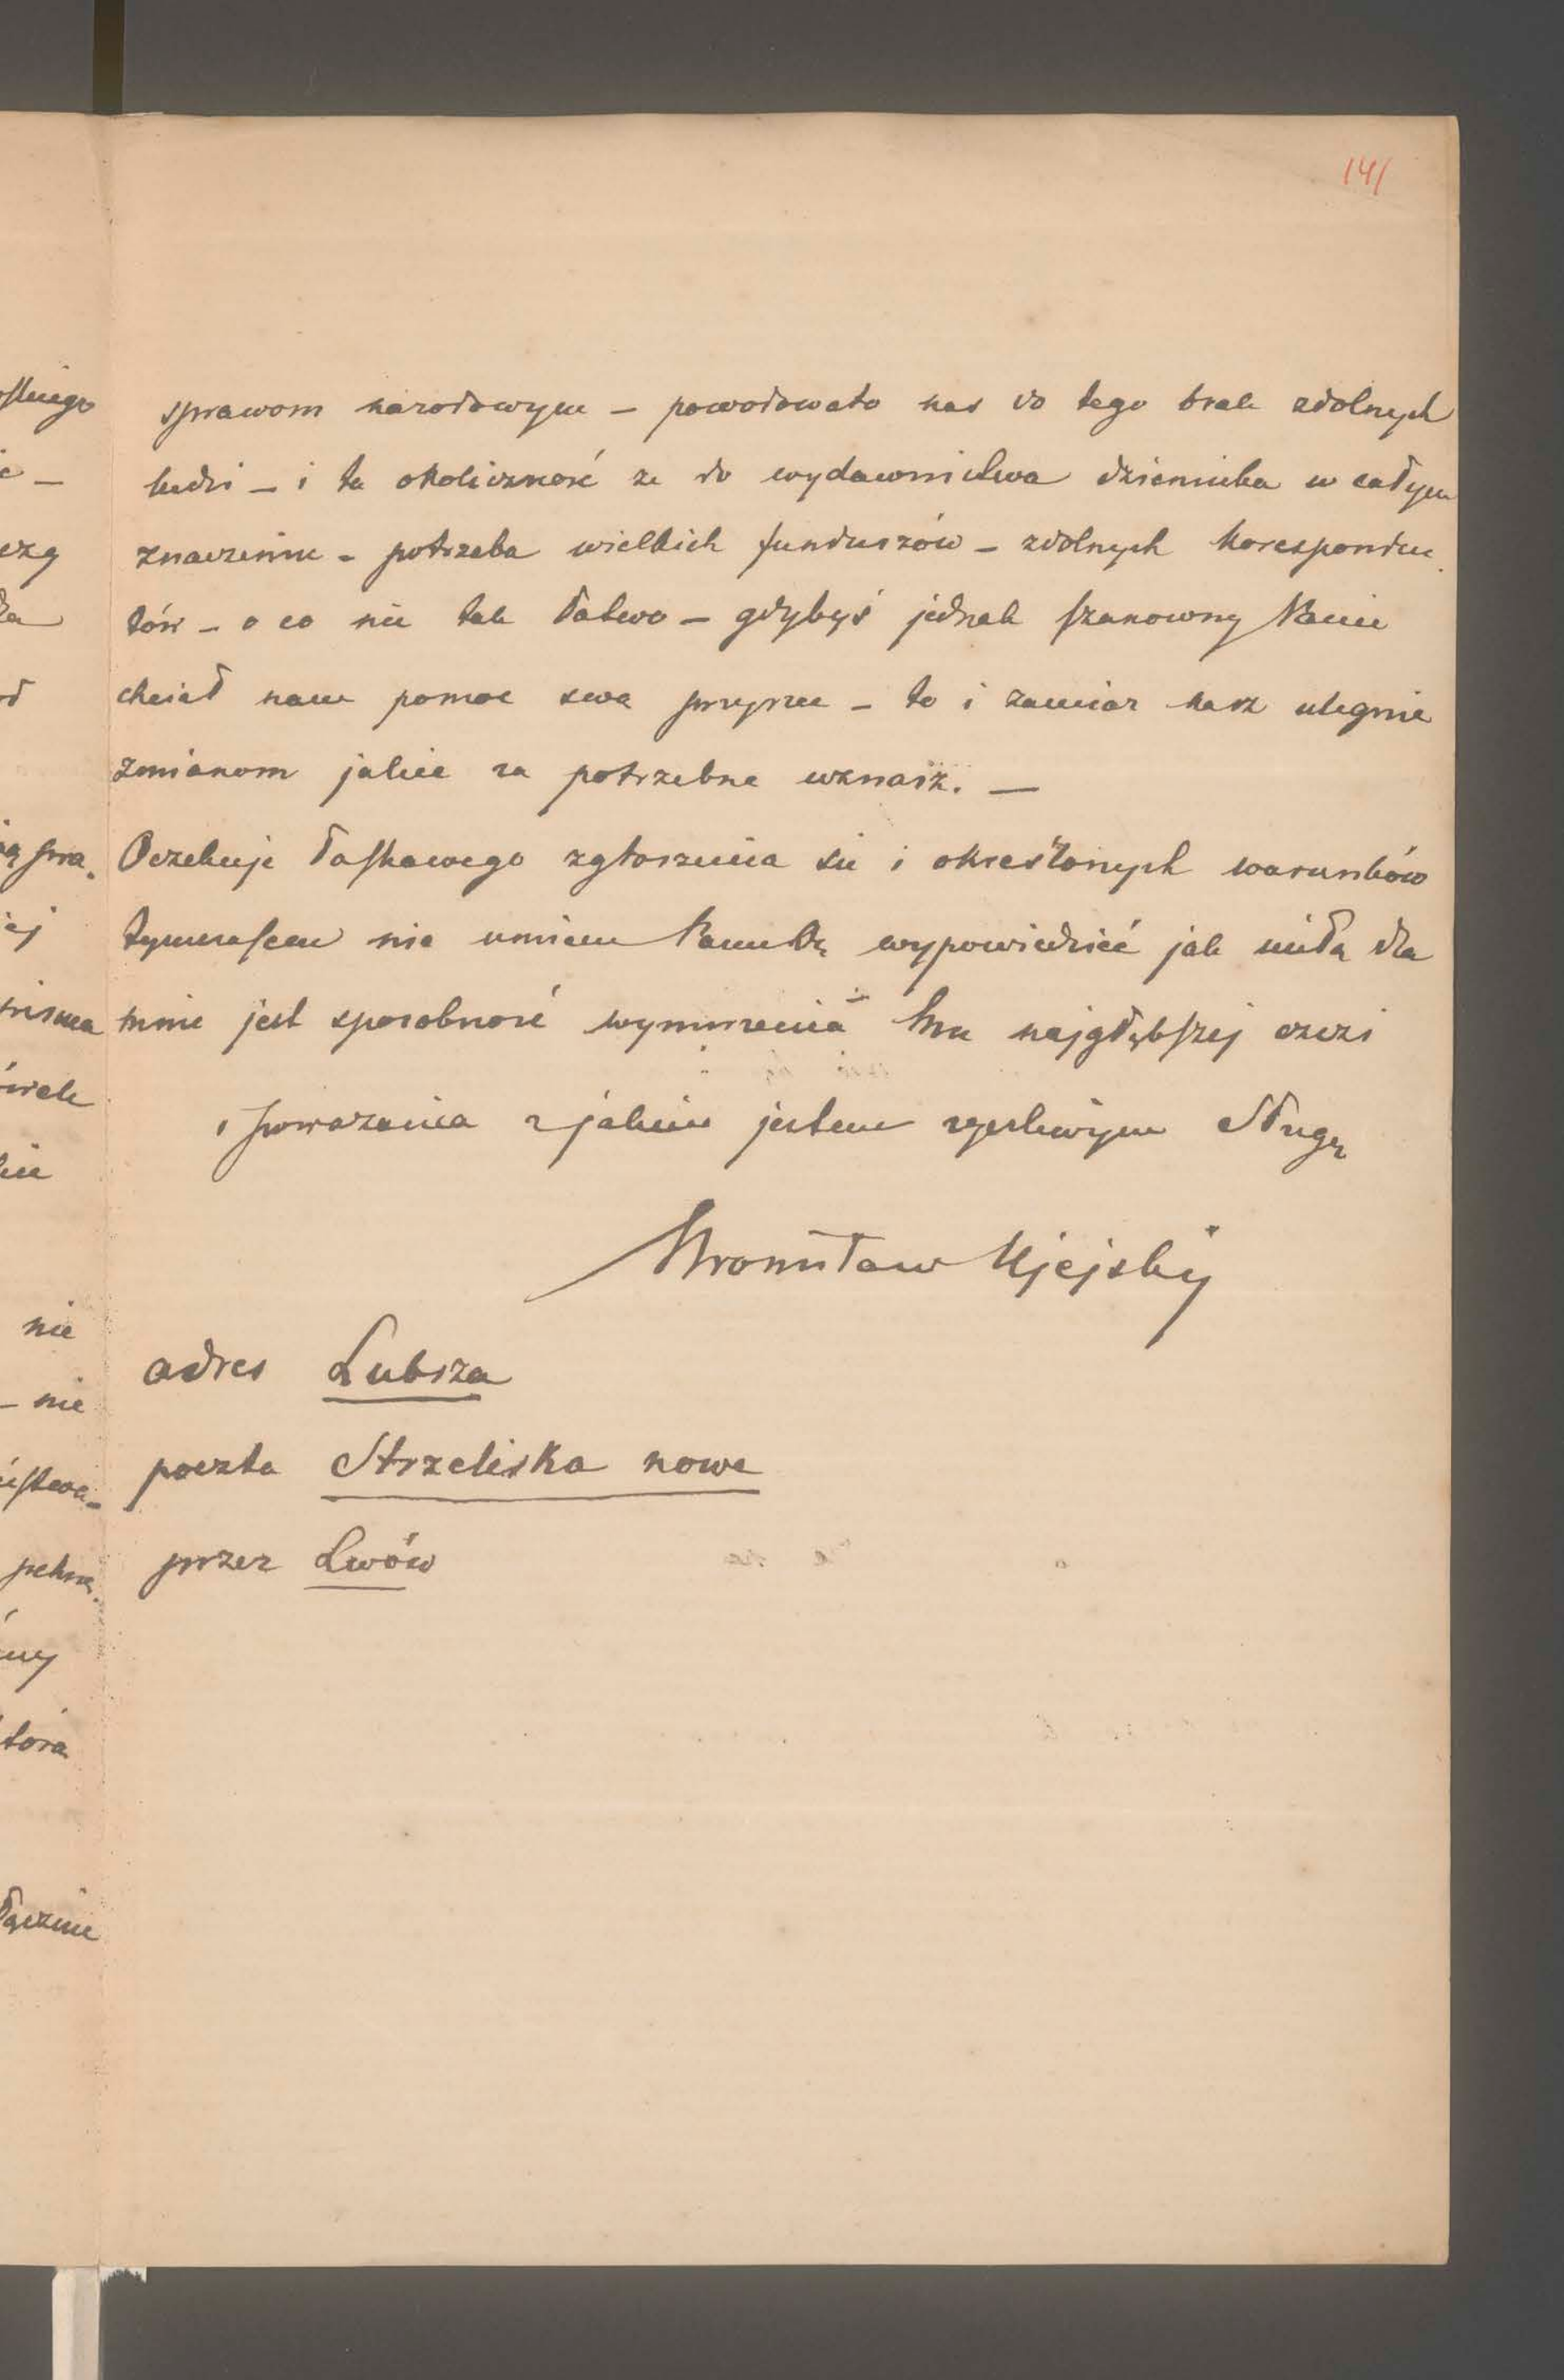 141
sprawom narodowym – powodowało nas do tego brak zdolnych
ludzi – i ta okoliczność ze do wydawnictwa dziennika w całym
znaczeniu – potrzeba wielkich funduszów – zdolnych koresponden
tów – o co nie tak łatwo – gdybyś jednak szanowny Panie
chciał nam pomoc swą przyrzec – to i zamiar nasz ulegnie
zmianom jakie za potrzebne uznasz. –
Oczekuje łaskawego zgłoszenia sie i określonych warunków
tymczasem nie umiem Panu wypowiedzieć jak miłą dla
mnie jest sposobność wynurzenia Mu najgłębszej czci
i poważania z jakim jestem życzliwym Sługą
Bronisław Ujejski
adres Lubsza
poczta Strzeliska nowe
przez Lwów